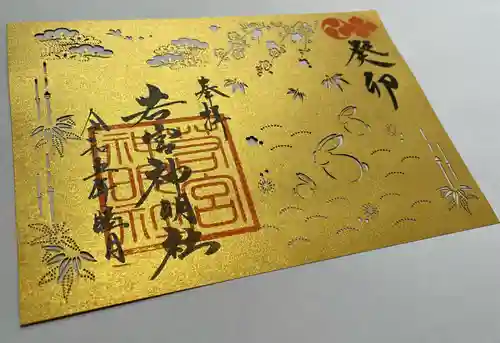 癸卯
奉拝
若宮神明社
令和五年睦月
若宮